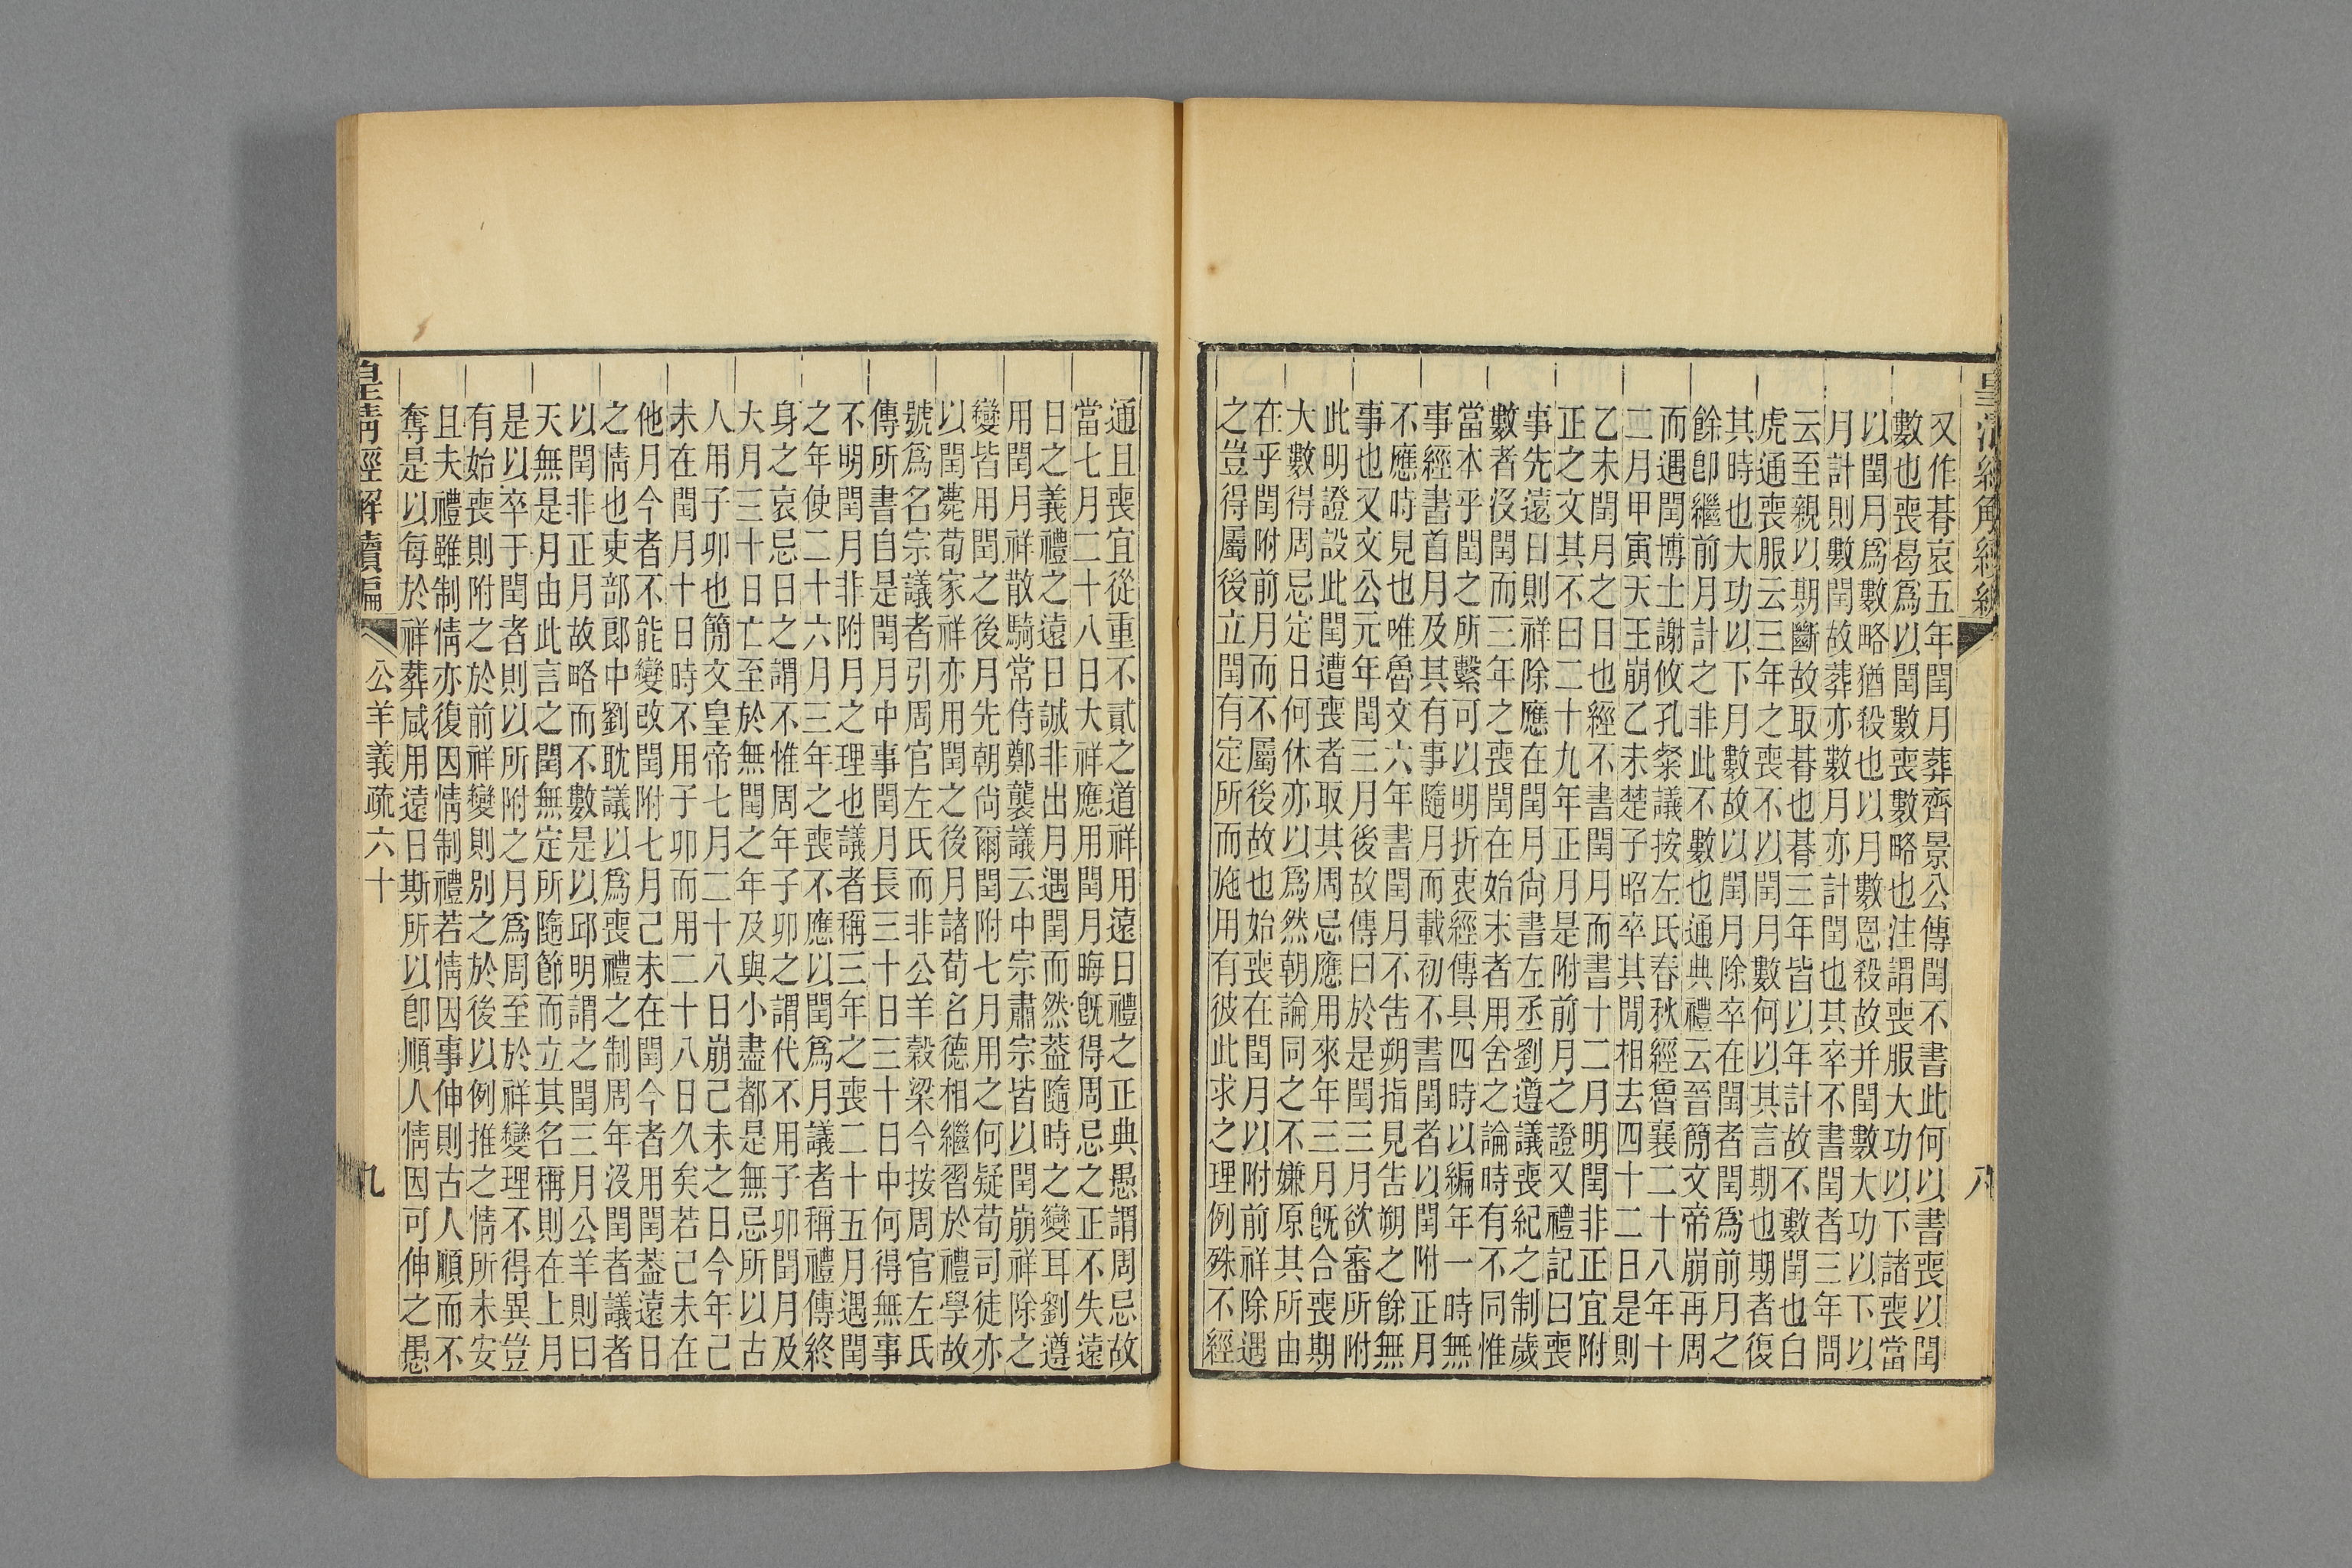 皇清經解續編　八
又作朞哀五年閏月葬齊景公傳閏不書此何以書喪以閏
數也喪曷爲以閏數喪數略也注謂喪服大功以下諸喪當
以閏月爲數略猶殺也以月數恩殺故并閏數大功以下以
月計則數閏故葬亦數月亦計閏也其卒不書閏者三年問
云至親以期斷故取朞也朞三年皆以年計故不數閏也白
虎通喪服云三年之喪不以閏月數何以其言期也期者復
其時也大功以下月數故以閏月除卒在閏者閏爲前月之
餘卽繼前月計之非此不數也通典禮云晉簡文帝崩再周
而遇閏博士謝攸孔粲議按左氏春秋經魯襄二十八年十
二月甲寅天王崩乙未楚子昭卒其閒相去四十二日是則
乙未閏月之日也經不書閏月而書十二月明閏非正宜附
正之文其不曰二十九年正月是附前月之證又禮記曰喪
事先遠日則祥除應在閏月尙書左丞劉遵議喪紀之制歲
數者沒閏而三年之喪閏在始末者用舍之論時有不同惟
當本乎閏之所繫可以明折衷經傳具四時以編年一時無
事經書首月及其有事隨月而載初不書閏者以閏附正月
不應時見也唯魯文六年書閏月不告朔指見告朔之餘無
事也又文公元年閏三月後故傳曰於是閏三月欲審所附
此明證設此閏遭喪者取其周忌應用來年三月旣合喪期
大數得周忌定日何休亦以爲然朝論同之不嫌原其所由
在乎閏附前月而不屬後故也始喪在閏月以附前祥除遇
之豈得屬後立閏有定所而施用有彼此求之理例殊不經
通且喪宜從重不貳之道祥用遠日禮之正典愚謂周忌故
當七月二十八日大祥應用閏月晦旣得周忌之正不失遠
日之義禮之遠日誠非出月遇閏而然葢隨時之變耳劉遵
用閏月祥散騎常侍鄭襲議云中宗肅宗皆以閏崩祥除之
變皆用閏之後月先朝尙爾閏附七月用之何疑荀司徒亦
以閏薨荀家祥亦用閏之後月諸荀名德相繼習於禮學故
號爲名宗議者引周官左氏而非公羊穀梁今按周官左氏
傳所書自是閏月中事閏月長三十日三十日中何得無事
不明閏月非附月之理也議者稱三年之喪二十五月遇閏
之年使二十六月三年之喪不應以閏爲月議者稱禮傳終
身之哀忌日之謂不惟周年子卯之謂代不用子卯閏月及
大月三十日亡至於無閏之年及與小盡都是無忌所以古
人用子卯也簡文皇帝七月二十八日崩己未之日今年己
未在閏月十日時不用子卯而用二十八日久矣若己未在
他月今者不能變改閏附七月己未在閏今者用閏葢遠日
之情也吏部郎中劉耽議以爲喪禮之制周年沒閏者議者
以閏非正月故略而不數是以邱明謂之閏三月公羊則曰
天無是月由此言之閏無定所隨節而立其名稱則在上月
是以卒于閏者則以所附之月爲周至於祥變理不得異豈
有始喪則附之於前祥變則別之於後以例推之情所未安
且夫禮雖制情亦復因情制禮若情因事伸則古人順而不
奪是以每於祥葬咸用遠日斯所以卽順人情因可伸之愚
皇清經解續編　公羊義疏六十　九